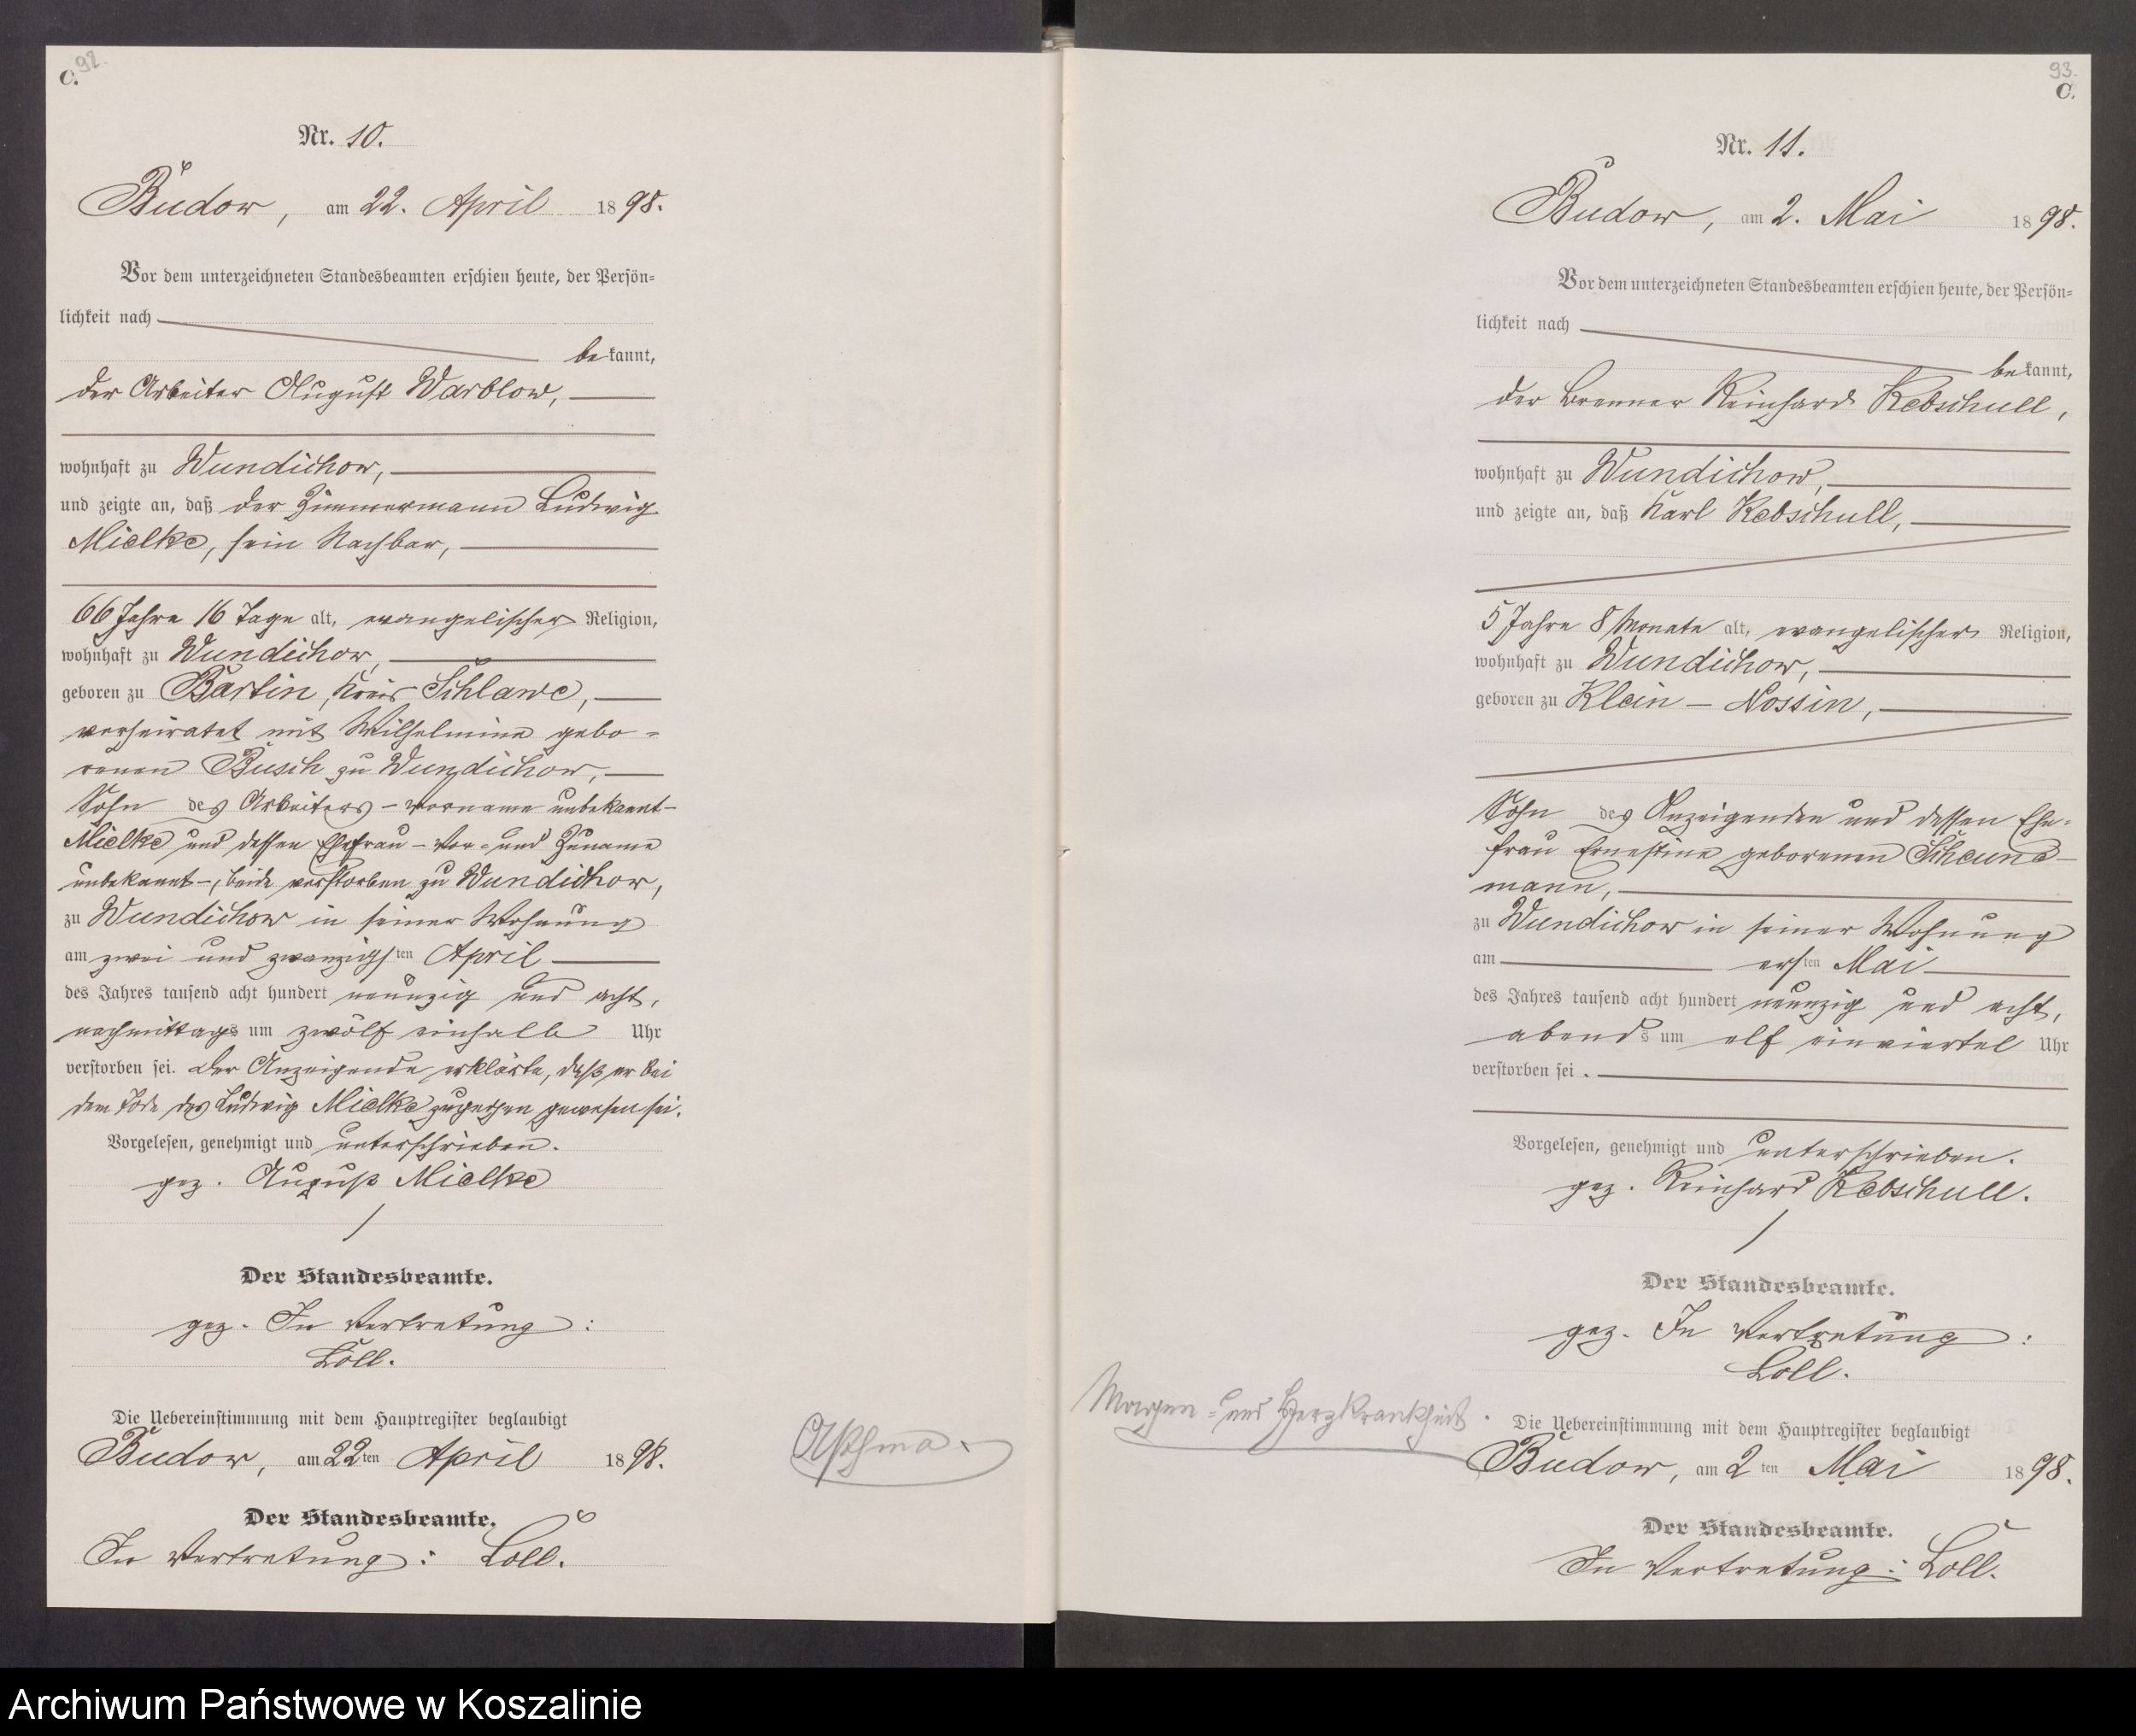 92.
C.
Nr. 10.
Budow, am 22. April 1898.
Vor dem unterzeichneten Standesbeamten erschien heute, der Persön=
lichkeit nach
bekannt,
der Arbeiter August Warblow,
wohnhaft zu Wundichow,
und zeigte an, daß der Zimmermann Ludwig
Mielke, sein Nachbar,
66 Jahre 16 Tage alt, evangelischer Religion,
wohnhaft zu Wundichow,
geboren zu Bartin, Kreis Schlawe,
verheiratet mit Wilhelmine gebo=
renen Busch zu Wundichow,
Sohn des Arbeiters – Vorname unbekannt –
Mielke und dessen Ehefrau – Vor= und Zuname
unbekannt –, beide verstorben zu Wundichow,
zu Wundichow in seiner Wohnung
am zwei und zwanzigsten April
des Jahres tausend acht hundert neunzig und acht,
nachmittags um zwölf einhalb Uhr
verstorben sei. Der Anzeigende erklärte, daß er bei
dem Tode des Ludwig Mielke zugegen gewesen sei.
Vorgelesen, genehmigt und unterschrieben.
gez. August Mielke
Der Standesbeamte.
gez. In Vertretung:
Loll.
Die Uebereinstimmung mit dem Hauptregister beglaubigt
Budow, am 22ten April 1898.
Der Standesbeamte.
In Vertretung: Loll.
Asthma.
93.
C.
Nr. 11.
Budow, am 2. Mai 1898.
Vor dem unterzeichneten Standesbeamten erschien heute, der Persön=
lichkeit nach
bekannt,
der Brenner Reinhard Rebschull,
wohnhaft zu Wundichow,
und zeigte an, daß Karl Rebschull,
5 Jahre 8 Monate alt, evangelischer Religion,
wohnhaft zu Wundichow,
geboren zu Klein – Nossin,
Sohn des Anzeigenden und dessen Ehe=
frau Ernestine geborenen Scheune–
mann,
zu Wundichow in seiner Wohnung
am ersten Mai
des Jahres tausend acht hundert neunzig und acht,
abends um elf einviertel Uhr
verstorben sei.
Vorgelesen, genehmigt und unterschrieben.
gez. Reinhard Rebschull.
Der Standesbeamte.
gez. In Vertretung:
Loll.
und Herzkrankheit.
Die Uebereinstimmung mit dem Hauptregister beglaubigt
Budow, am 2ten Mai 1898.
Der Standesbeamte.
In Vertretung: Loll.
Archiwum Państwowe w Koszalinie